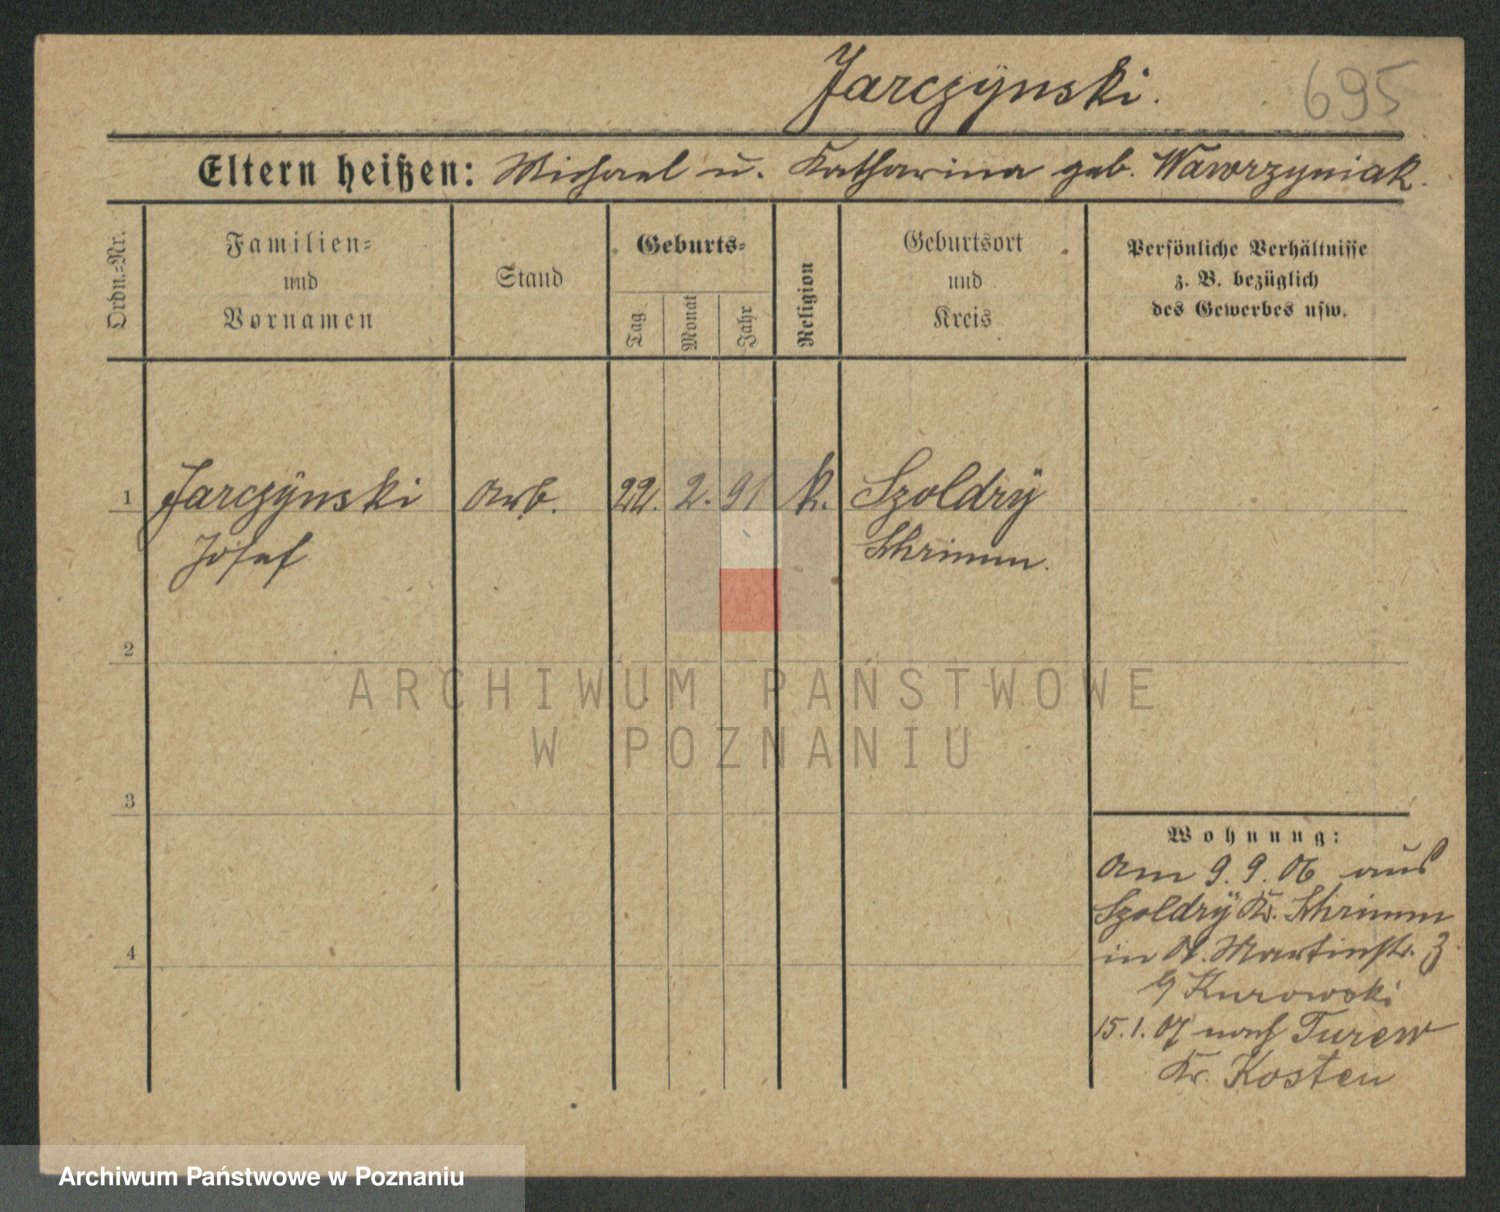 Jarczÿnski.
695
Eltern heißen: Michael u. Katharina geb. Wawrzyniak.
Ordn.-Nr.
Familien- und Vornamen
Stand
Geburts-
Tag
Monat
Jahr
Religion
Geburtsort und Kreis
Persönliche Verhältnisse
z. B. bezüglich
des Gewerbes usw.
1 Jarczÿnski Arb. 22. 2. 91 k. Szoldrÿ
Josef Schrimm.
2
ARCHIWUM PAŃSTWOWE
W POZNANIU
3
Wohnung:
Am 9. 9. 06 aus
Szoldrÿ Kr. Schrimm
in St. Martinstr. 3
Kurowski
15. 1. 07 nach Turew
Kr. Kosten
4
Archiwum Państwowe w Poznaniu